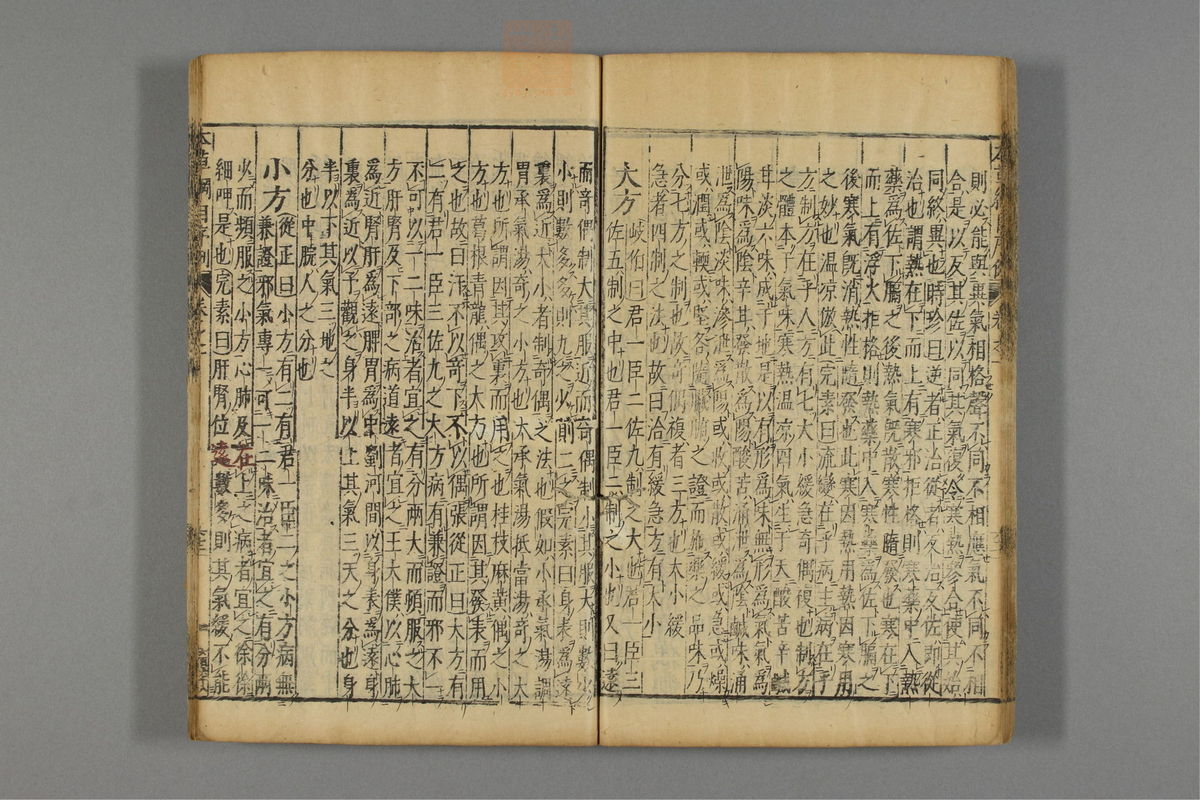 則必能與異氣相格聲不同不相應氣不同不相
合是以反其佐以同其氣復令寒熱參合使其始
同終異也時珍曰逆者正治從者反治反佐即從
治也謂熱在下而上有寒邪拒格則寒藥中入熱
藥爲佐下膈之後熱氣既散寒性隨發也寒在下
而上有浮火拒格則熱藥中入寒藥爲佐下膈之
後寒氣既消熱性隨發也此寒因熱用熱因寒用
之妙也温凉倣此完素曰流變在乎病主病在乎
方制方在乎人方有七大小緩急奇偶復也制方
之體本于氣味寒熱温凉四氣生于天酸苦辛鹹
甘淡六味成于地是以有形爲味無形爲氣氣爲
陽味爲陰辛甘發散爲陽酸苦涌泄爲陰鹹味涌
泄爲陰淡味滲泄爲陽或收或散或緩或急或燥
或潤或輭或堅各隨臟腑之證而施藥之品味乃
分七方之制也故奇偶複者三方也大小緩
急者四制之法也故曰治有緩急方有大小
大方 岐伯曰君一臣二佐九制之大也君一臣三
佐五制之中也君一臣二制之小也又曰遠
而奇偶制大其服近而奇偶制小其服大則數少
小則數多多則九之少則二之完素曰身表爲遠
裏爲近大小者制奇偶之法也假如小承氣湯調
胃承氣湯奇之小方也大承氣湯抵當湯奇之大
方也所謂因其攻裏而用之也桂枝麻黄偶之小
方也葛根青龍偶之大方也所謂因其發表而用
之也故曰汗不以奇下不以偶張從正曰大方有
二有君一臣三佐九之大方病有兼證而邪不一
不可以一二味治者宜之有分兩大而頓服之大
方肝腎及下部之病道遠者宜之王太僕以心肺
爲近腎肝爲遠脾胃爲中劉河間以身表爲遠身
裏爲近以予觀之身半以上其氣三天之分也身
半以下其氣三地之
分也中脘人之分也
小方 從正曰小方有二有君一臣二之小方病無
兼證邪氣專一可一二味治者宜之有分兩
少而頻服之小方心肺及在上之病者宜之徐徐
細呷是也完素曰肝腎位遠數多則其氣緩不能